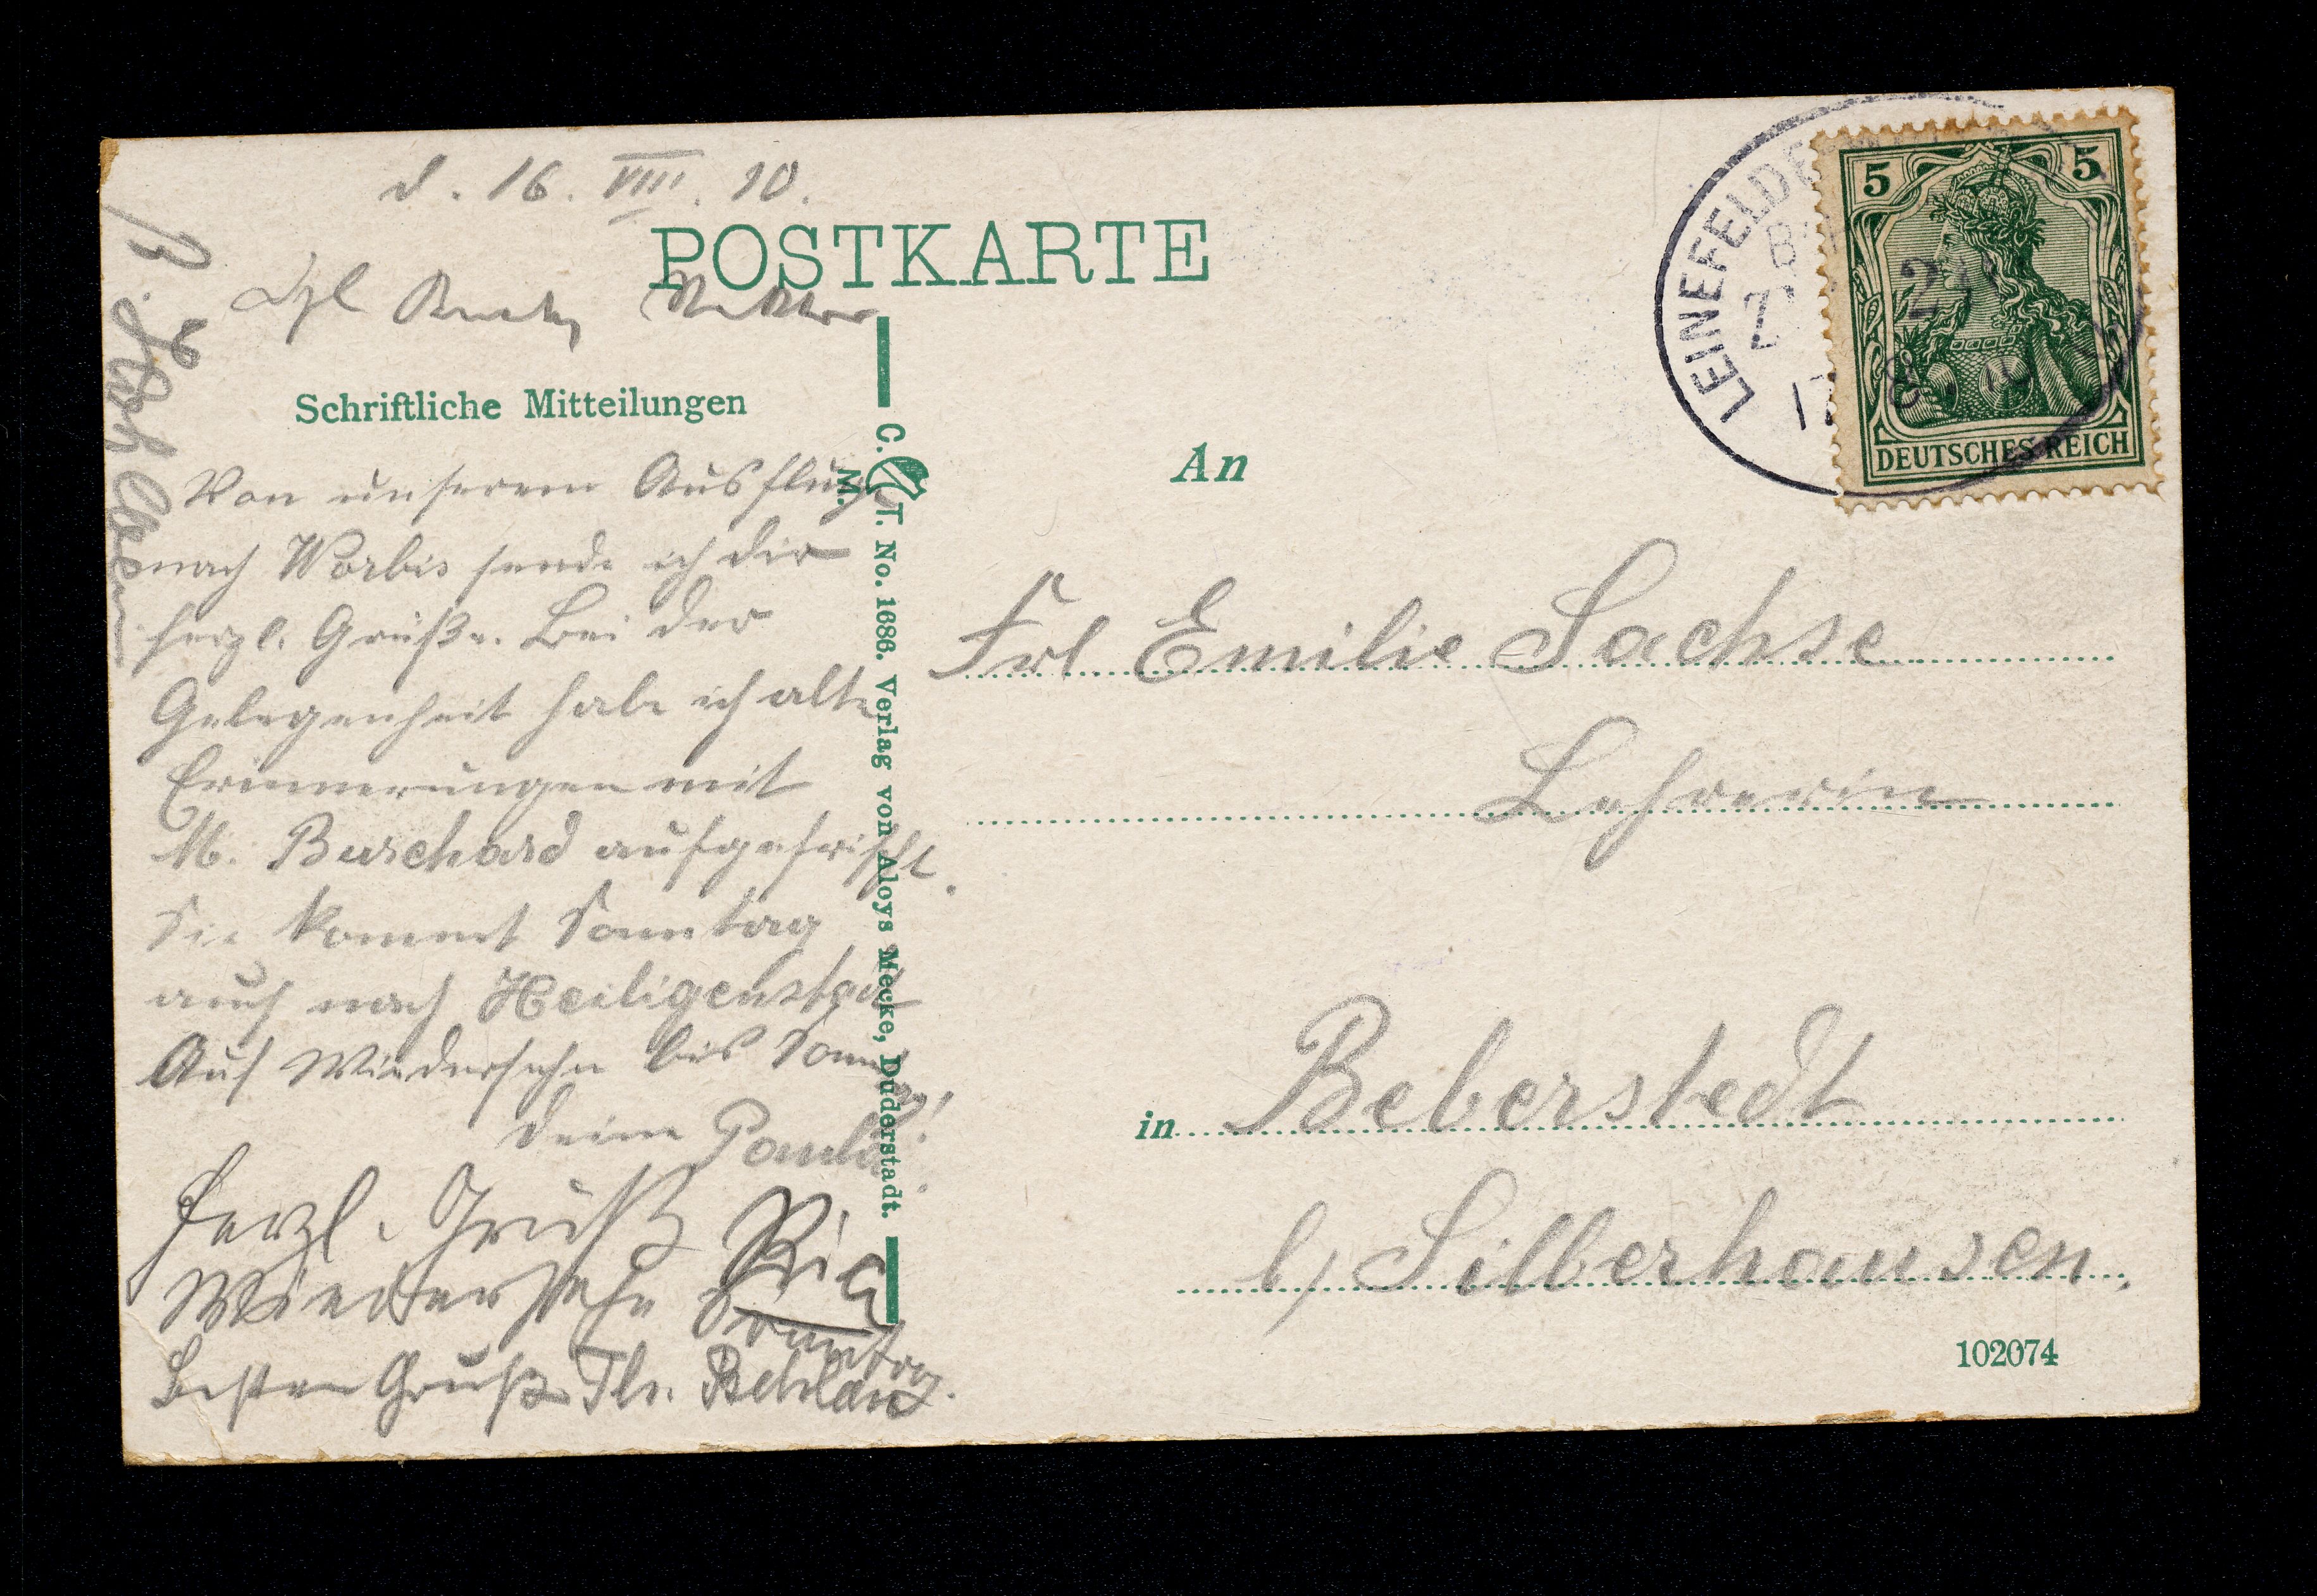 d. 16. VIII. 10.
POSTKARTE
Schriftliche Mitteilungen
Von unserem Ausfluge
nach Worbis sende ich dir
herzl. Grüße. Bei der
Gelegenheit habe ich alte
Erinnerungen mit
M. Burchard aufgefrischt.
Sie kommt Sonntag
auch nach Heiligenstadt
Auf Wiedersehn bis Sonntag!
deine
Herzl. Gruß
Wiedersehn Sonntag.
Besten Gruß
C. T. M. No. 1686. Verlag von Aloys Mecke, Duderstadt.
LEINEFELDE
5 5
DEUTSCHES REICH
An
Frl. Emilie Sachse
Lehrerin
in Beberstedt
b/ Silberhausen.
102074